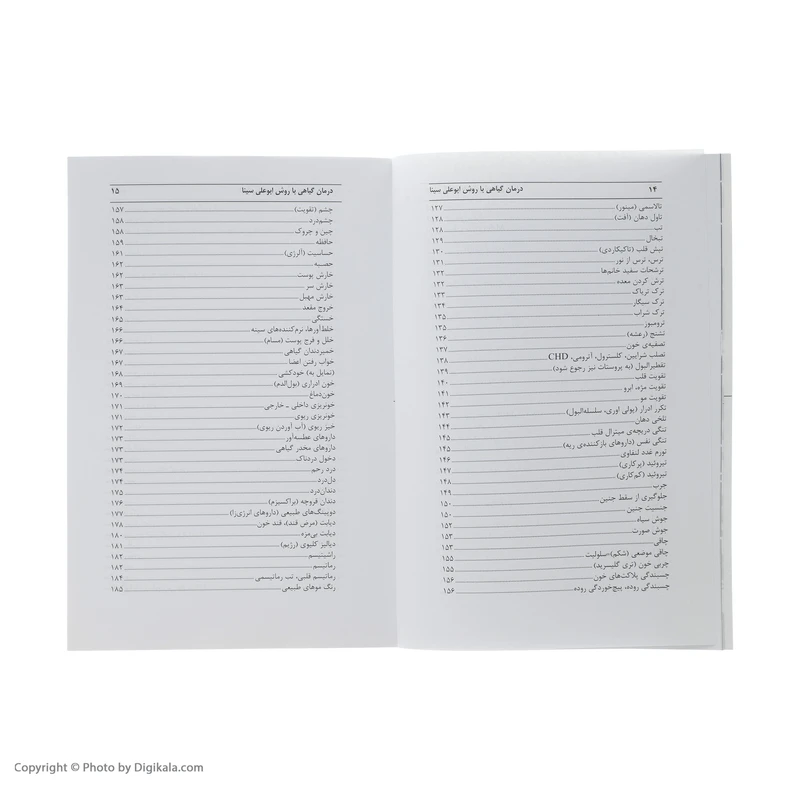 ۱۴ درمان گیاهی با روش ابوعلی سینا
تالاسمی (مینور) ۱۲۷
تاول دهان (آفت) ۱۲۸
تب ۱۲۸
تبخال ۱۲۹
تپش قلب (تاکیکاردی) ۱۳۰
ترس، ترس از نور ۱۳۱
ترشحات سفید خانم‌ها ۱۳۲
ترش کردن معده ۱۳۲
ترک تریاک ۱۳۳
ترک سیگار ۱۳۴
ترک شراب ۱۳۵
ترومبوز ۱۳۵
تشنج (رعشه) ۱۳۶
تصفیه‌ی خون ۱۳۷
تصلب شرایین، کلسترول، آترومی، CHD ۱۳۸
تقطیرالبول (به پروستات نیز رجوع شود) ۱۳۹
تقویت قلب ۱۴۰
تقویت مژه، ابرو ۱۴۱
تقویت مو ۱۴۲
تکرر ادرار (پولی اوری، سلسله‌البول) ۱۴۳
تلخی دهان ۱۴۴
تنگی دریچه‌ی میترال قلب ۱۴۵
تنگی نفس (داروهای بازکننده‌ی ریه) ۱۴۵
تورم غدد لنفاوی ۱۴۶
تیروئید (پرکاری) ۱۴۷
تیروئید (کم‌کاری) ۱۴۸
جرب ۱۴۹
جلوگیری از سقط جنین ۱۵۰
جنسیت جنین ۱۵۰
جوش سیاه ۱۵۲
جوش صورت ۱۵۳
چاقی ۱۵۳
چاقی موضعی (شکم)-سلولیت ۱۵۵
چربی خون (تری گلیسرید) ۱۵۵
چسبندگی پلاکت‌های خون ۱۵۶
چسبندگی روده، پیچ‌خوردگی روده ۱۵۶
درمان گیاهی با روش ابوعلی سینا ۱۵
چشم (تقویت) ۱۵۷
چشم‌درد ۱۵۸
چین و چروک ۱۵۸
حافظه ۱۵۹
حساسیت (آلرژی) ۱۶۱
حصبه ۱۶۲
خارش پوست ۱۶۲
خارش سر ۱۶۳
خارش مهبل ۱۶۳
خروج مقعد ۱۶۴
خستگی ۱۶۵
خلط‌آورها، نرم‌کننده‌های سینه ۱۶۶
خلل و فرج پوست (مسام) ۱۶۶
خمیردندان گیاهی ۱۶۷
خواب رفتن اعضا ۱۶۷
(تمایل به) خودکشی ۱۶۸
خون ادراری (بول‌الدم) ۱۶۹
خون‌دماغ ۱۷۰
خونریزی داخلی - خارجی ۱۷۱
خونریزی ریوی ۱۷۱
خیز ریوی (آب آوردن ریوی) ۱۷۲
داروهای عطسه‌آور ۱۷۳
داروهای مخدر گیاهی ۱۷۳
دخول دردناک ۱۷۳
درد رحم ۱۷۴
دل‌درد ۱۷۴
دندان‌درد ۱۷۵
دندان قروچه (براکسیزم) ۱۷۶
دوپینگ‌های طبیعی (داروهای انرژی‌زا) ۱۷۷
دیابت (مرض قند)، قند خون ۱۷۸
دیابت بی‌مزه ۱۸۰
دیالیز کلیوی (رژیم) ۱۸۱
راشیتیسم ۱۸۲
رماتیسم ۱۸۲
رماتیسم قلبی، تب رماتیسمی ۱۸۴
رنگ موهای طبیعی ۱۸۵
Copyright © Photo by Digikala.com